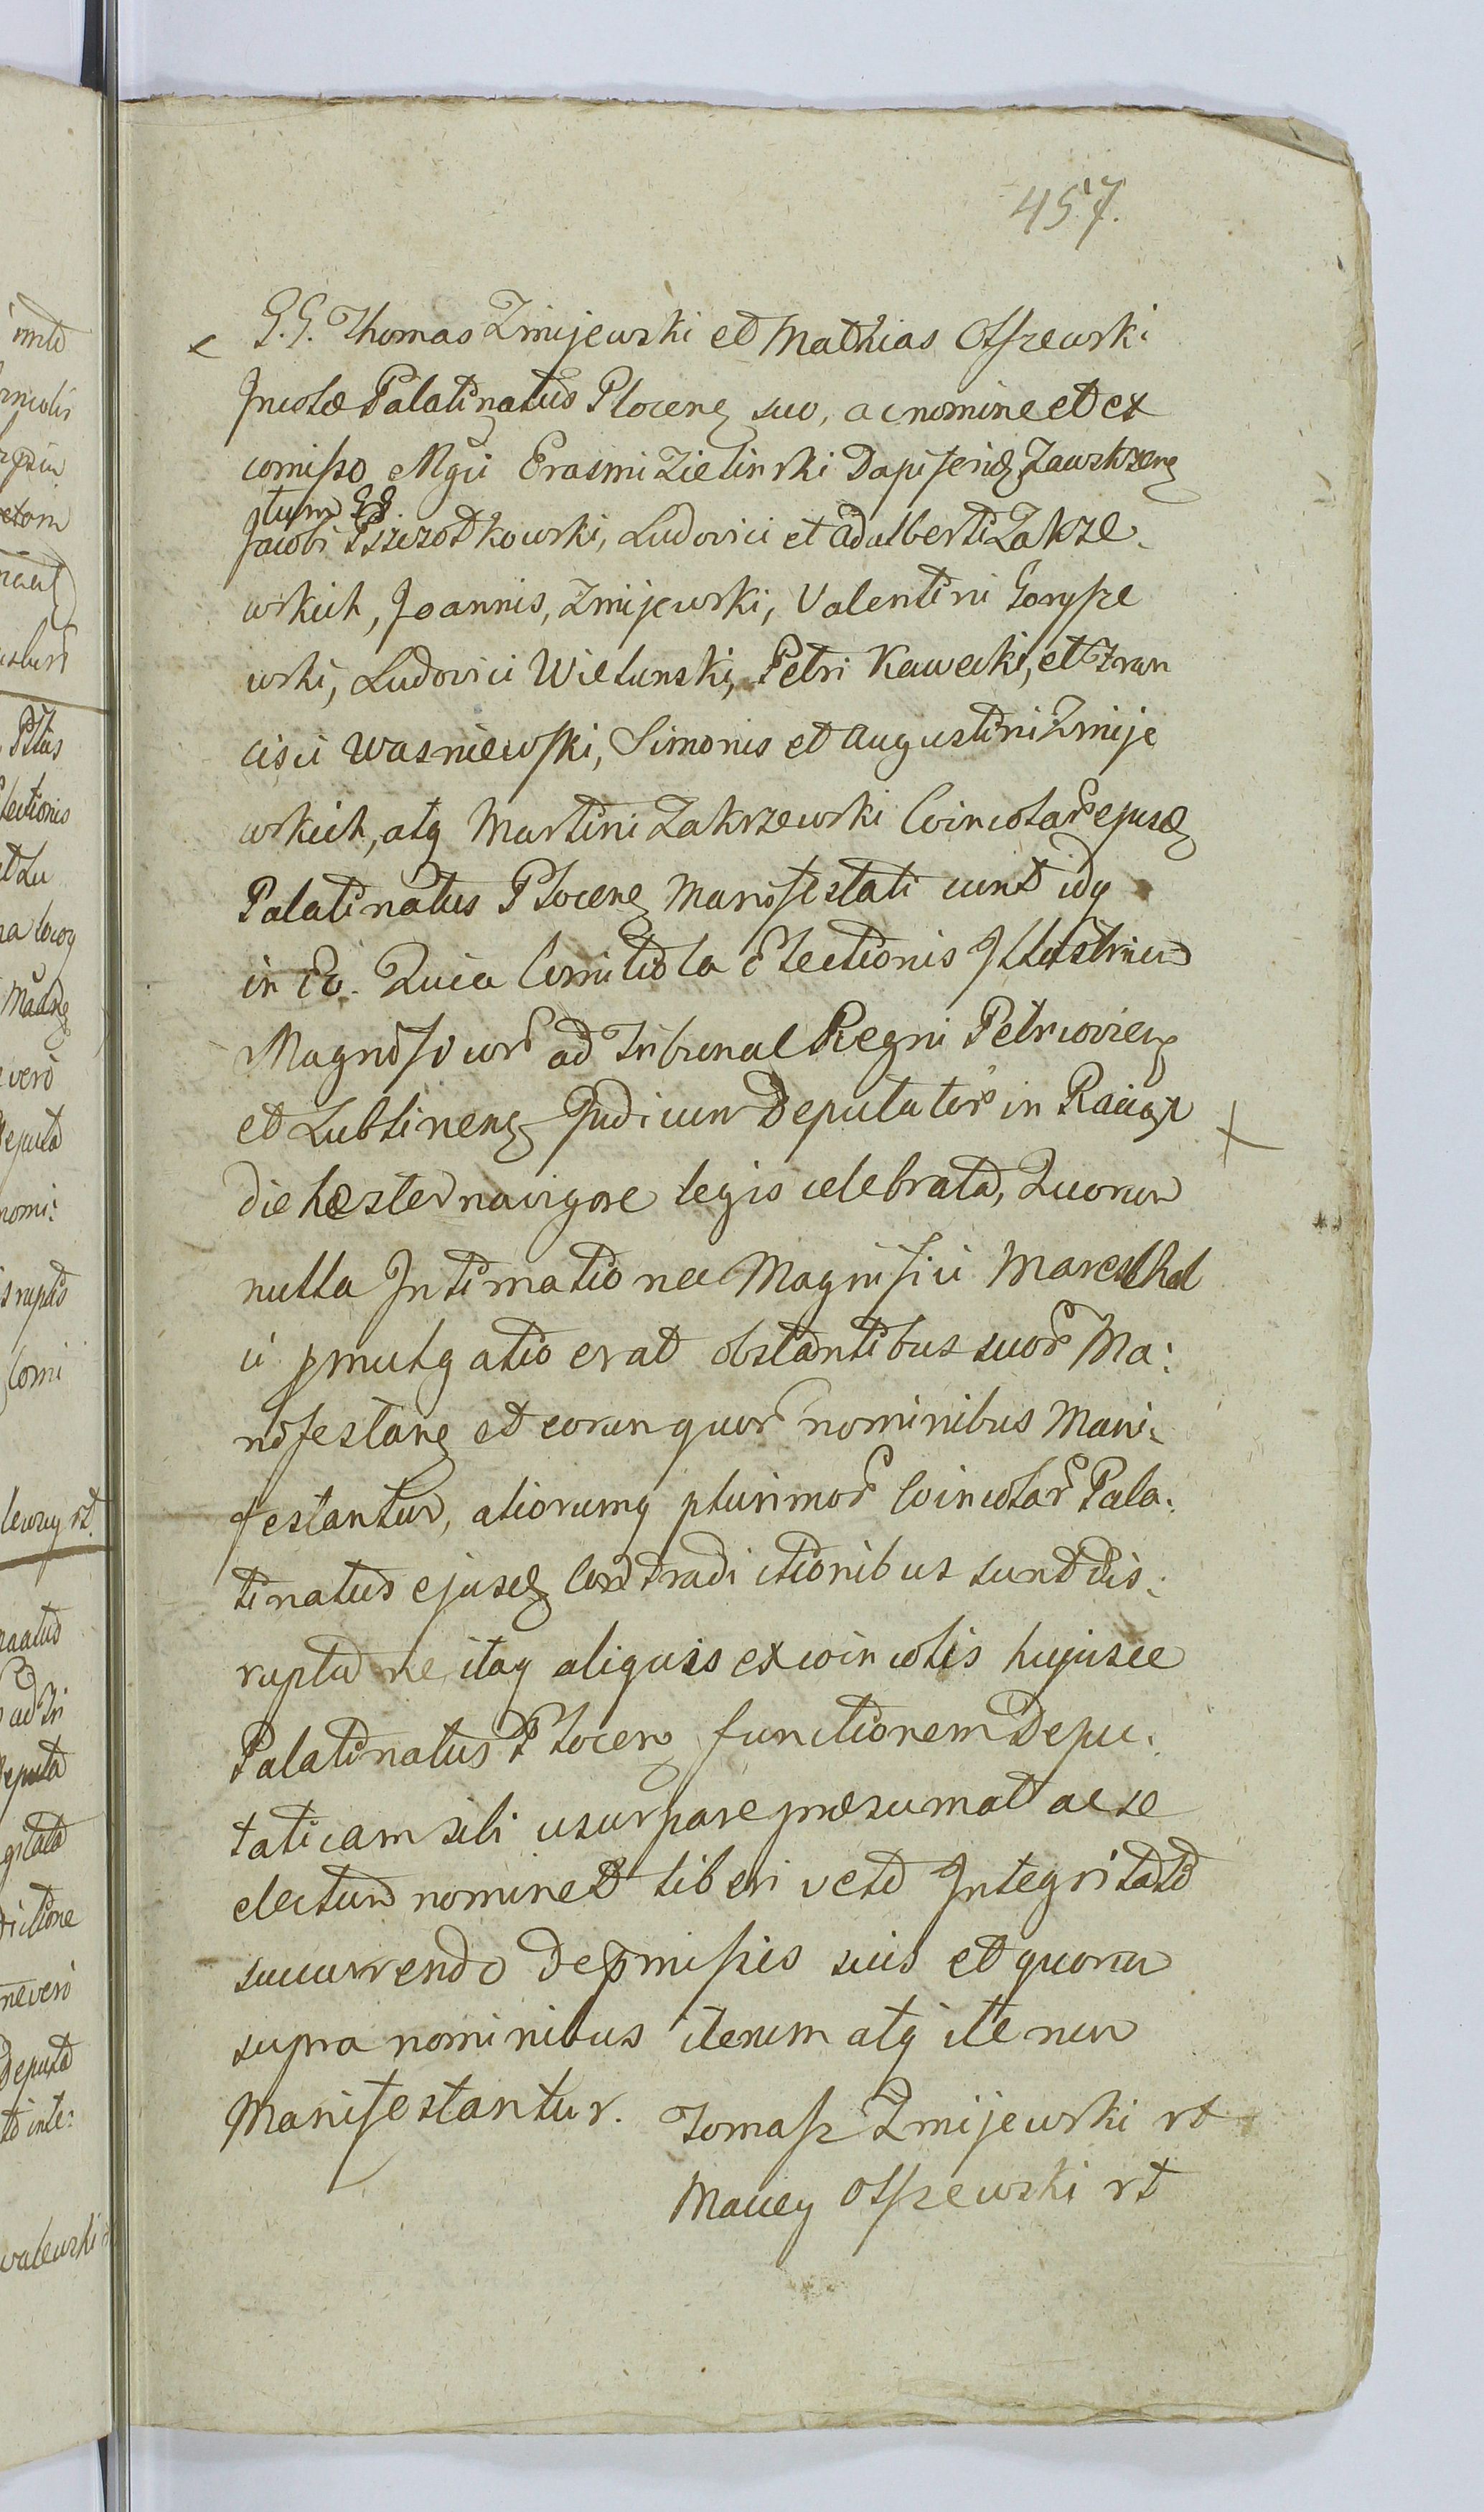 457.
G.G. Thomas Zmijewski et Mathias Olszewski
Jncolæ Palatinatus Plocen suo, ac nomine et ex
comisso Mgci Erasmi Zielinski Dapiferid Zawskrzen
tum GG.
Jacobi Pszczotkowski, Ludovici et Adalberti Zakrze-
wskich, Joannis, Zmijewski, Valentini Gorysze
wski, Ludovici Wielunski, Petri Kawecki, et Fran
cisci Wasniewski, Simonis et Augustini Zmije
wskich, atq Martini Zakrzewski Coincolar ejusd
Palatinatus Plocen Manifestati sunt idq
in Eo. Quia Comitiola Electionis Jllustrium
Magnificor ad Tribunal Regni Petricovien
et Lublinen Judicum Deputator in Raciąż
die hesterna vigore legis celebrata, Quorum
nulla Jntimatio nec Magnifici Mareschal
ci pmulgatio erat obstantibus suor Ma:
nifestan et eorum quor nominibus Mani:
festantur, aliorumq plurimor Coincolar Pala:
tinatus ejusd Contradictionibus sunt dis:
rupta ne itaq aliquis ex coincolis hujusce
Palatinatus Plocen functionem Depu:
taticam sibi usurpare præsumat ac se
electum nominet liberi veto Jntegritati
succurrendo de pmissis suis et quorum
supra nominibus iterum atq iterum
Manifestantur. Tomasz Zmijewski rt
Maciey Olszewski rt